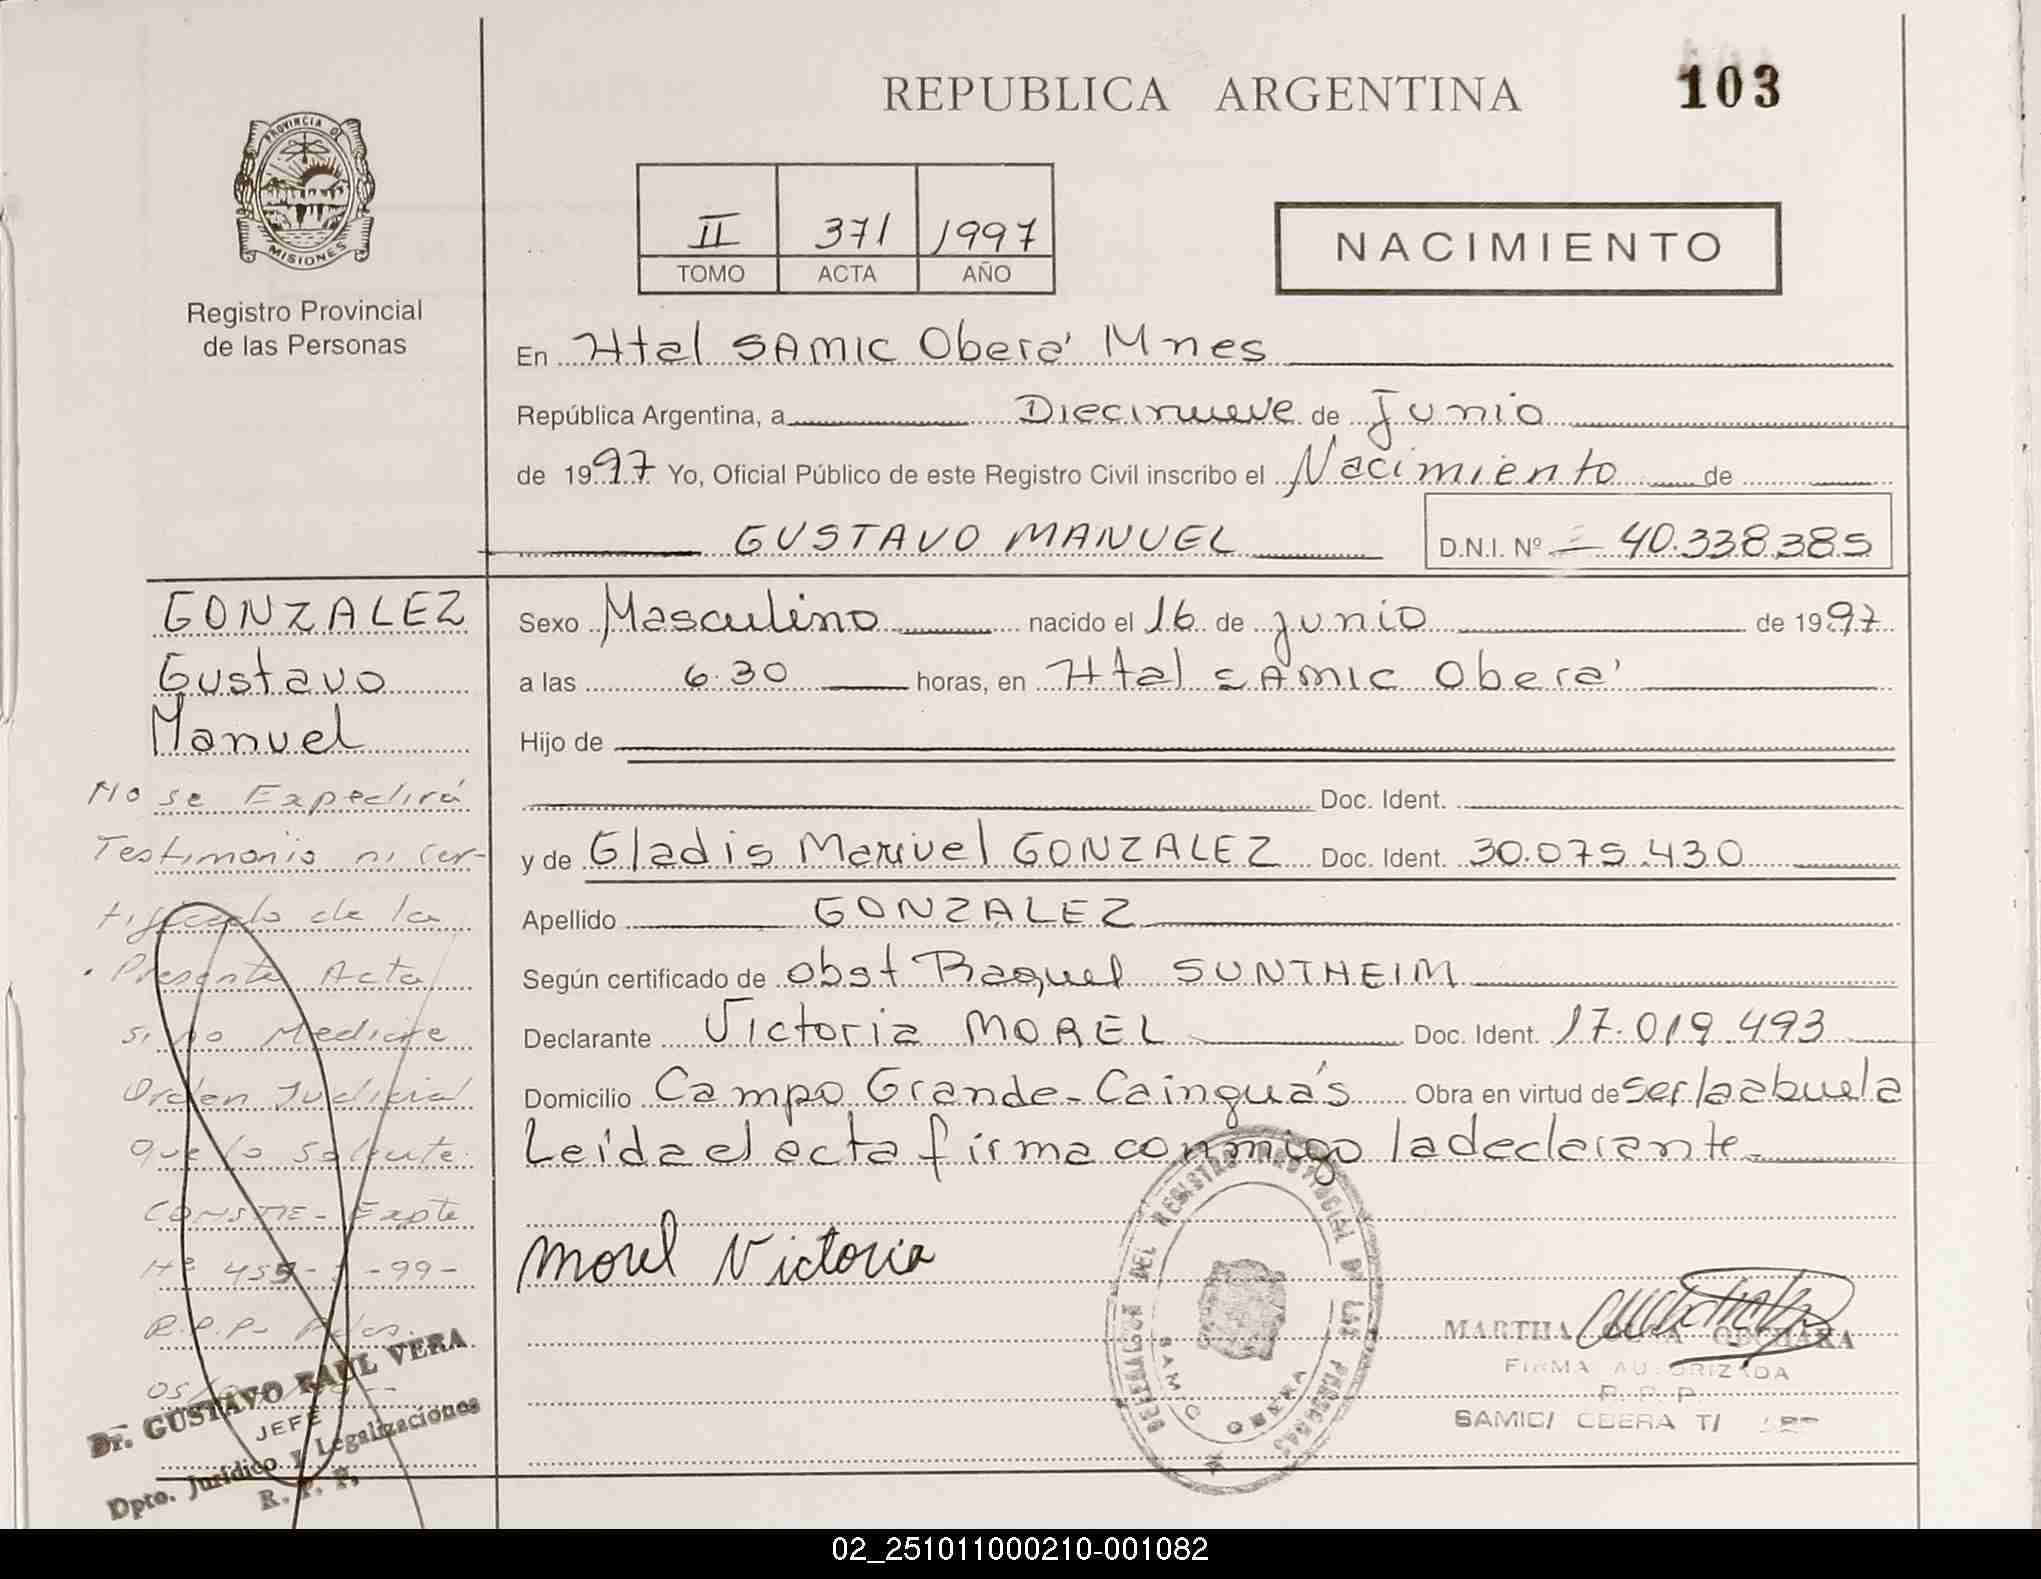 REPUBLICA ARGENTINA
103
PROVINCIA DE
MISIONES
Registro Provincial
de las Personas
II 371 1997
TOMO ACTA AÑO
NACIMIENTO
En Htal SAMIC Oberá Mnes
República Argentina, a Diecinueve de Junio
de 1997 Yo, Oficial Público de este Registro Civil inscribo el Nacimiento de
GUSTAVO MANUEL D.N.I. Nº 40.338.385
GONZALEZ
Gustavo
Manuel
No se Expedirá
Testimonio ni cer-
tificado de la
Presente Acta
si no Mediare
Orden Judicial
que lo solicite.
CONSTE- Expte
Nº 455- -99-
R.P.P- Pdas.
Dr. GUSTAVO RAUL VERA
JEFE
Dpto. Jurídico y Legalizaciones
R. P. P.
Sexo Masculino nacido el 16 de junio de 1997
a las 6.30 horas, en Htal SAMIC Oberá
Hijo de
Doc. Ident.
y de Gladis Marivel GONZALEZ Doc. Ident. 30.075.430
Apellido GONZALEZ
Según certificado de obst Raquel SUNTHEIM
Declarante Victoria MOREL Doc. Ident. 17.019.493
Domicilio Campo Grande-Cainguás Obra en virtud de ser la abuela
Leída el acta firma conmigo la declarante-
Morel Victoria
DELEGACION DEL REGISTRO PROVINCIAL DE LAS PERSONAS
SAMIC OBERA
MARTHA
FIRMA AUTORIZADA
R. P. P.
SAMIC/ OBERA T/
02_251011000210-001082